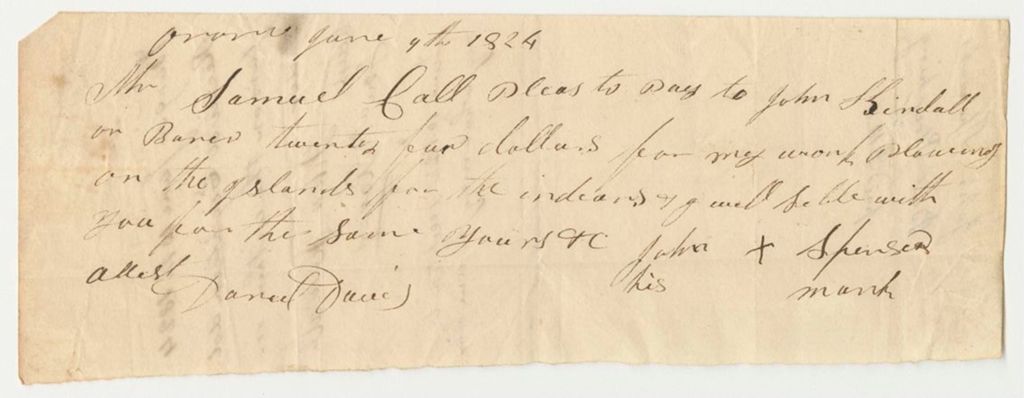 Orono June 9th 1824
Mr Samuel Call Pleas to Pay to John Kindall
or Barer twenty four dollars for my work Plowing
on the yslands for the indians & y will settle with
you for the same Yours &C John + Spenser
attest Daniel Davis his mark